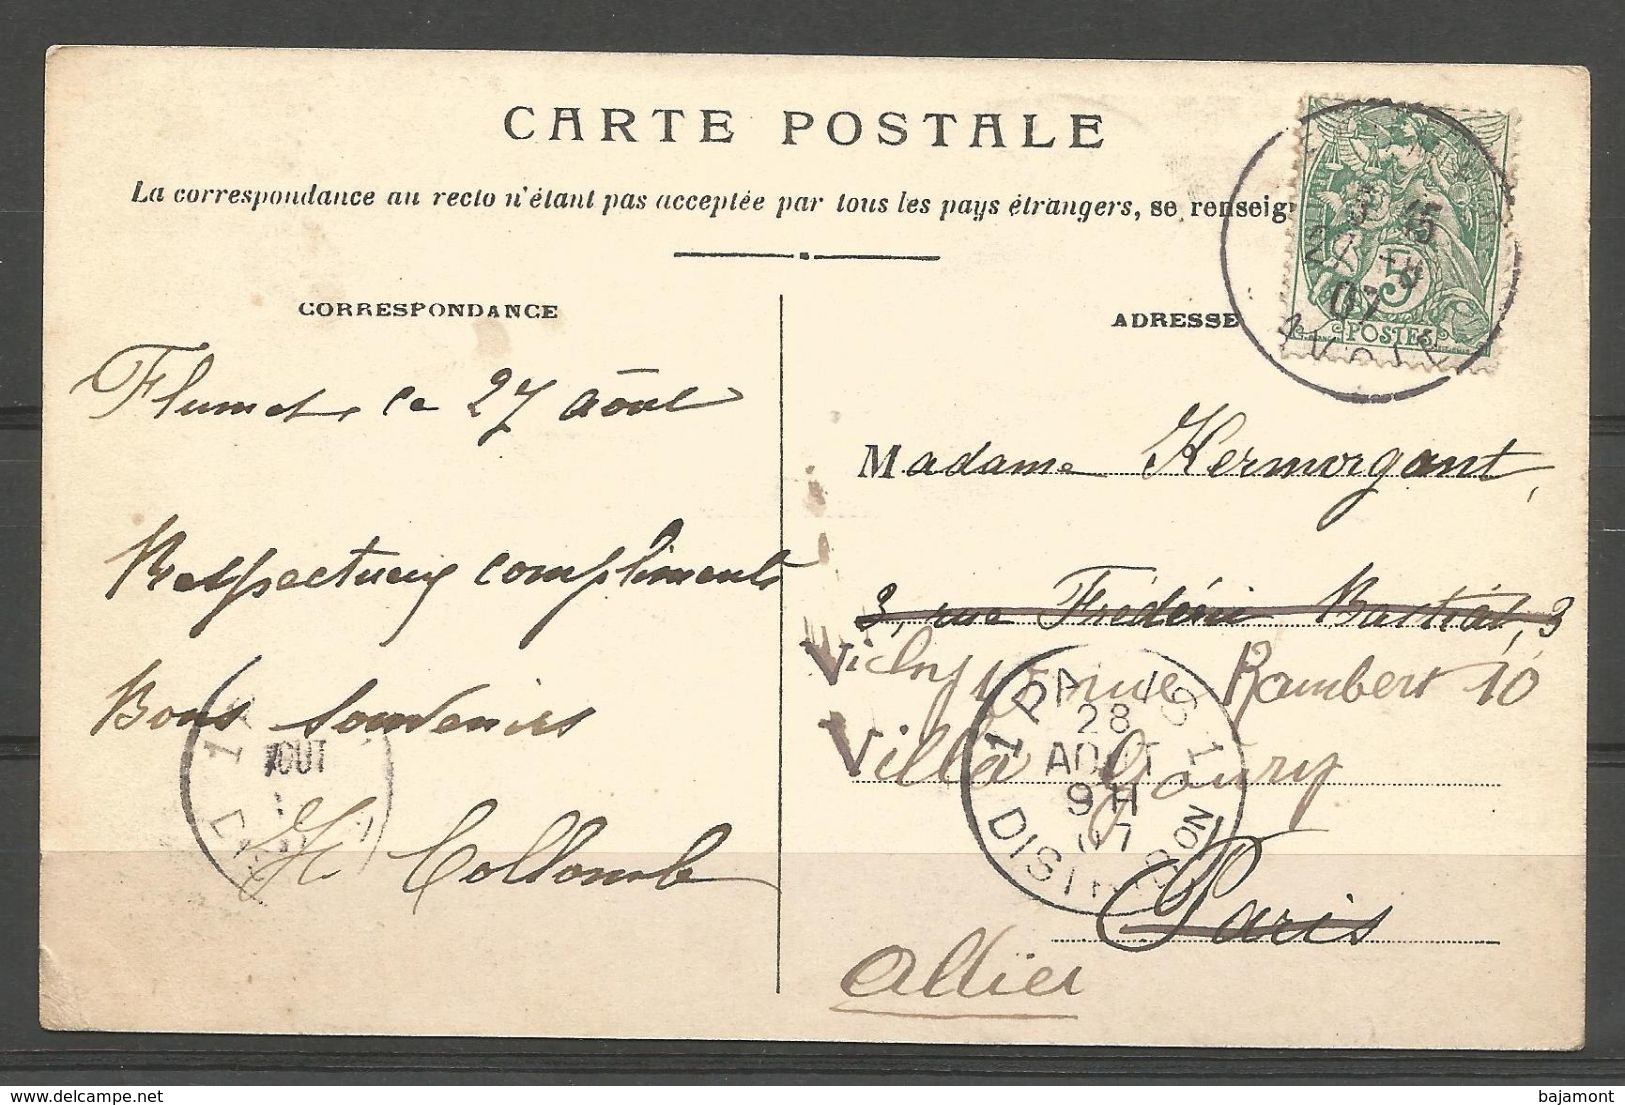 CARTE POSTALE
La correspondance au recto n'étant pas acceptée par tous les pays étrangers, se renseig
CORRESPONDANCE
ADRESSE
15
27 -8
07
5
POSTES
Flumet, le 27 août
Respectueux compliments
Bons souvenirs
H. Collomb
AOUT
Madame Kermorgant,
3, rue Frédéric Bastiat, 3
Vichy rue Rambert 10
Villa Gaury
Paris
Allier
1 PARIS 1
28
AOUT
9 H
07
DISTRIBUTION
delcampe.net
bajamont